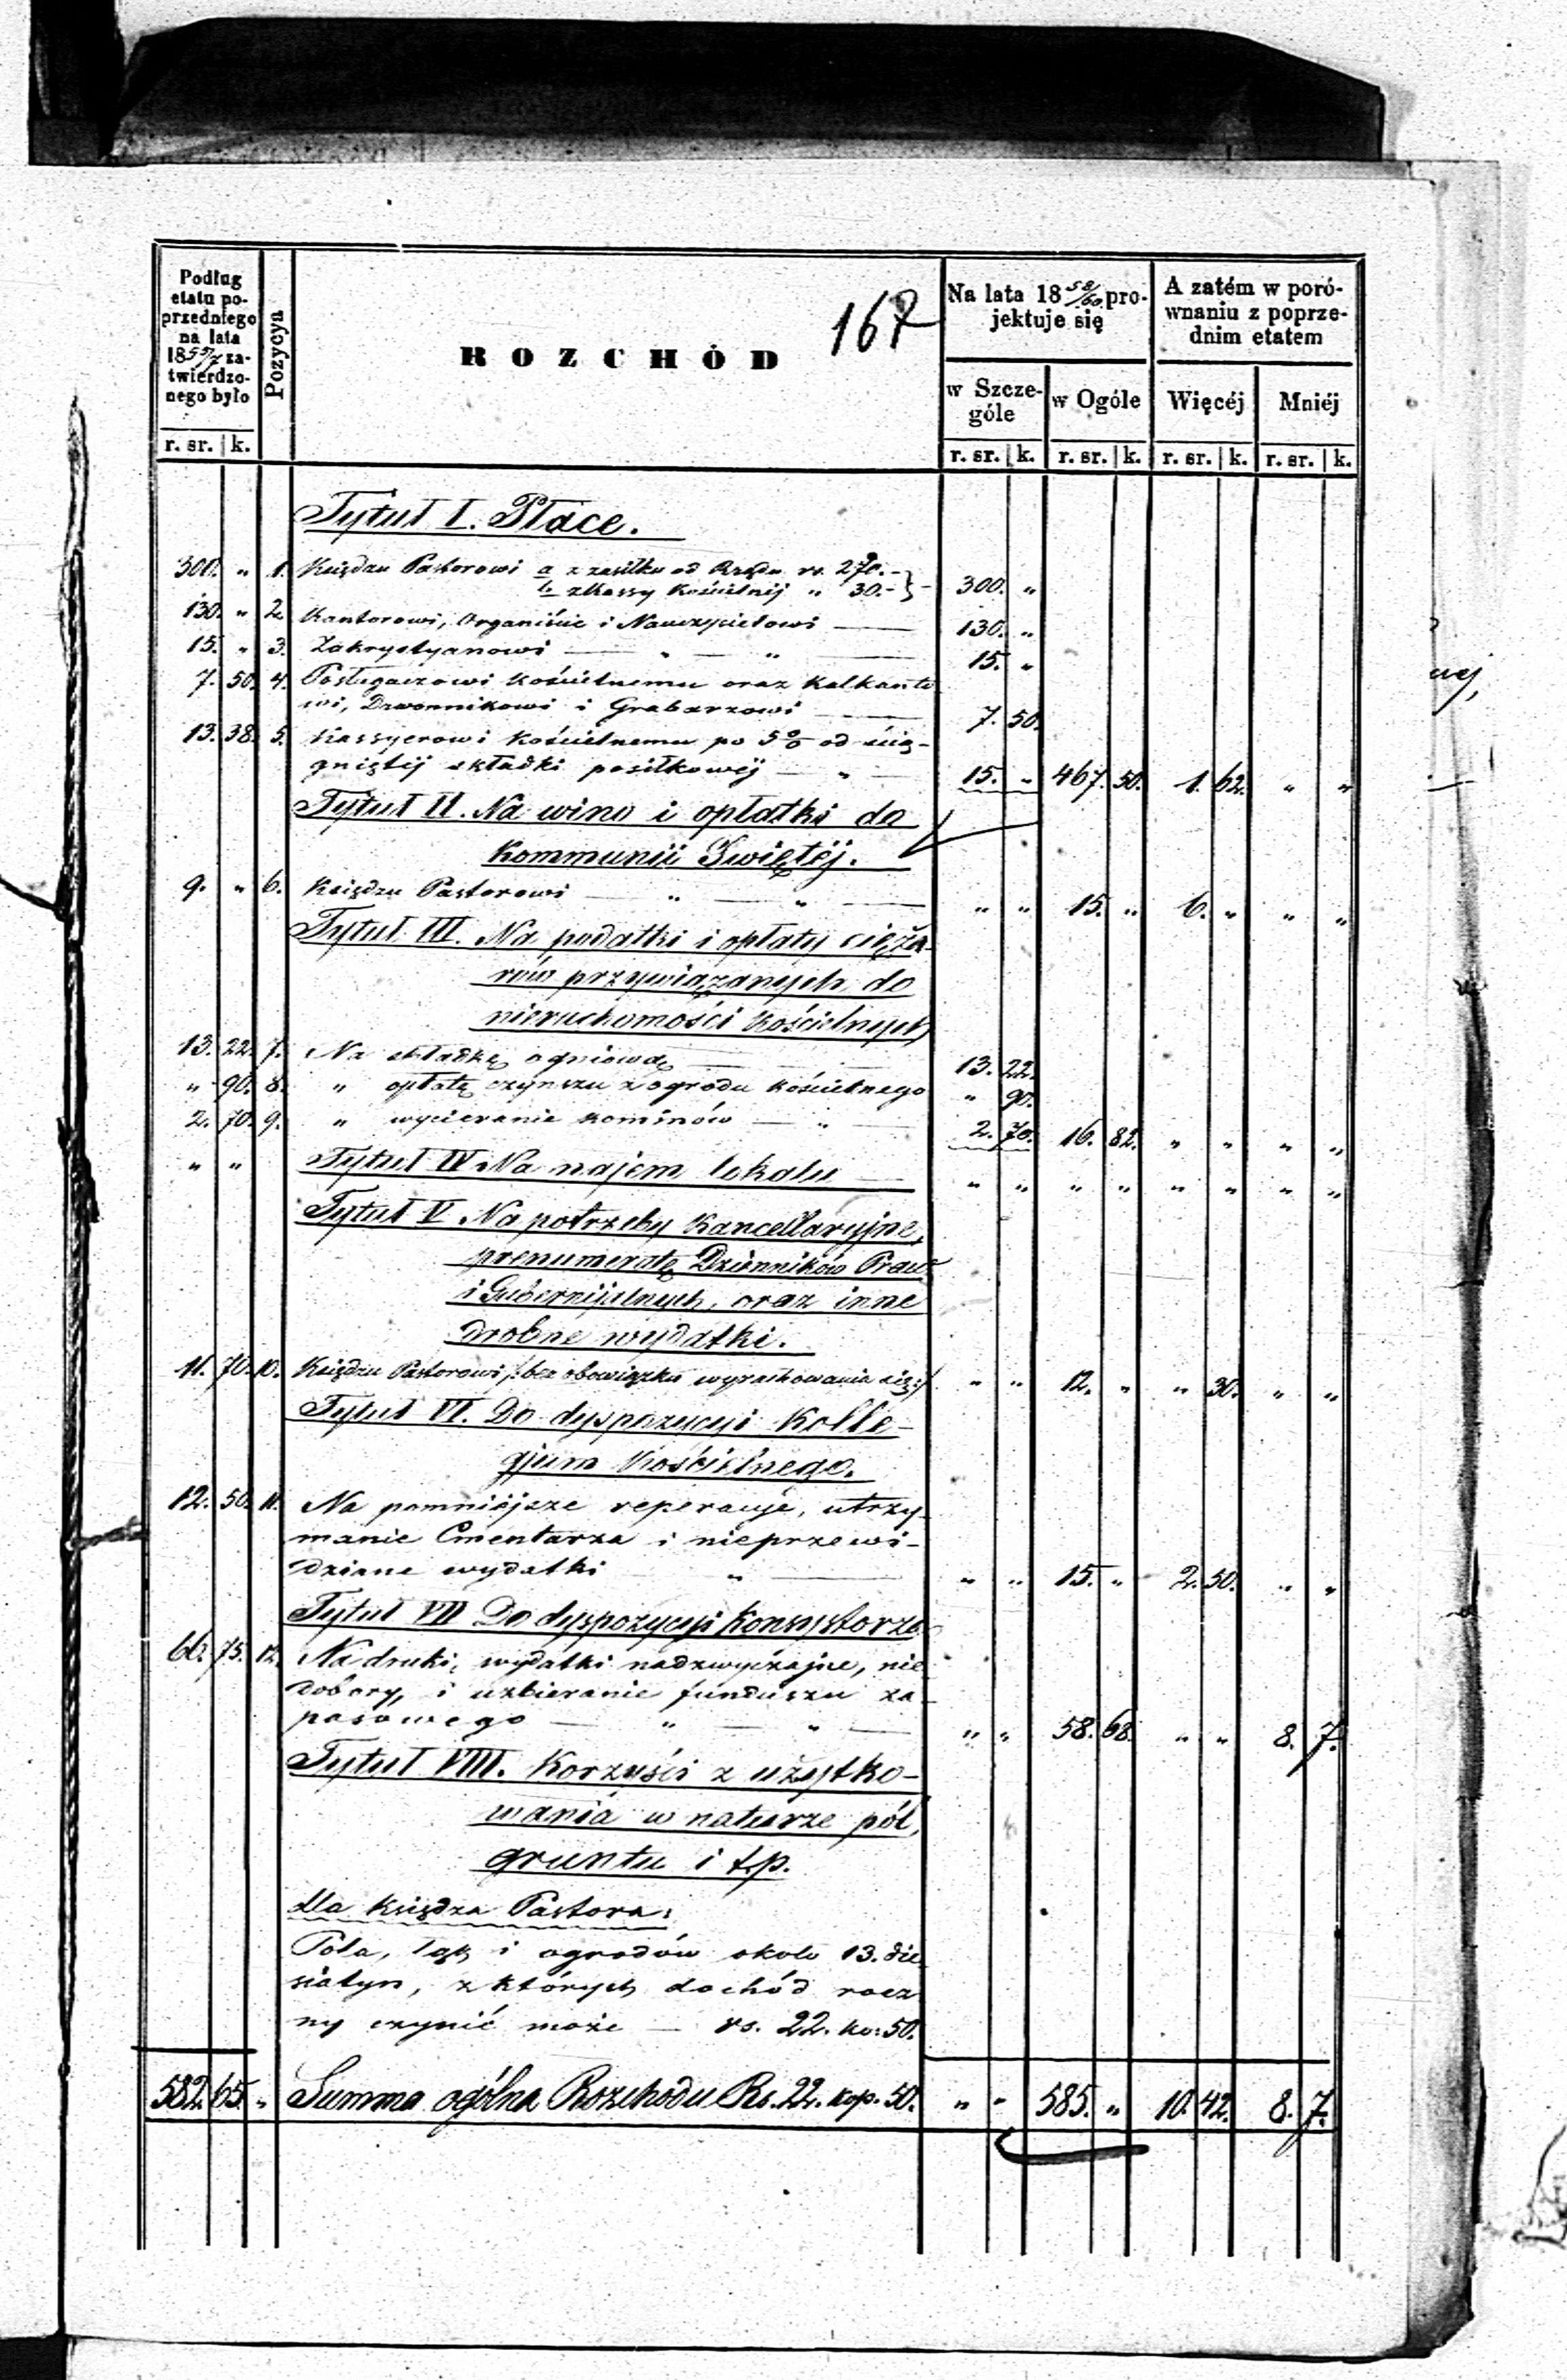 167
Podług etatu poprzedniego na lata 18 55/7 zatwierdzonego było
Pozycya
ROZCHÓD
Na lata 18 58/60 projektuje się
A zatém w porównaniu z poprzednim etatem
w Szczególe
w Ogóle
Więcéj
Mniéj
r. sr. k. r. sr. k. r. sr. k. r. sr. k. r. sr. k.
Tytuł I. Płace.
300. " 1. Księdzu Pastorowi a z zasiłku od Rządu rs. 270.-
b z Kassy Kościelnij " 30.- } - 300. "
130. " 2. Kantorowi, Organiście i Nauczycielowi — 130. "
15. " 3. Zakrystyanowi — " — " — 15. "
7. 50. 4. Posługaczowi Kościelnemu oraz Kalkanto
wi, Dzwonnikowi i Grabarzowi — 7. 50.
13. 38. 5. Kassyerowi Kościelnemu po 5% od ścią-
gniętéj składki posiłkowéj — " — 15. " 467. 50. 1. 62. " "
Tytuł II. Na wino i opłatki do
Kommunii Świętéj.
9. " 6. Księdzu Pastorowi — " — " — " " 15. " 6. " " "
Tytuł III. Na podatki i opłaty cięża-
rów przywiązanych do
nieruchomości Kościelnych
13. 22. 7. Na składkę ogniową — 13. 22.
" 90. 8. " opłatę czynszu z ogrodu Kościelnego " 90.
2. 70. 9. " wycieranie kominów — " — 2. 70. 16. 82. " " " "
" " Tytuł IV Na najem lokalu — " " " " " " " "
Tytuł V Na potrzeby Kancellaryjne,
prenumeratę Dzienników Praw
i Gubernijalnych, oraz inne
drobne wydatki.
11. 70. 10. Księdzu Pastorowi /: bez obowiązku wyrachowania się :/ " " 12. " " 30. " "
Tytuł VI. Do dyspozycyi Kolle-
gjum Kościelnego.
12. 50. 11. Na pomniéjsze reperacye, utrzy-
manie Cmentarza i nieprzewi-
dziane wydatki — " — " " 15. " 2. 50. " "
Tytuł VII Do dyspozycyi Konsystorza
66. 75. 12. Na druki, wydatki nadzwyczajne, nie
dobory, i uzbieranie funduszu za-
pasowego — " — " — " " 58. 68. " " 8. 7.
Tytuł VIII. Korzyści z użytko-
wania w naturze pól,
gruntu i t.p.
dla Księdza Pastora:
Pola, łąk i ogrodów około 13. die
siatyn, z których dochód rocz
ny czynić może — rs. 22. ko: 50.
582. 65. " Summa ogólna Rozchodu Rs. 22. kop. 50. " " 585. " 10. 42. 8. 7.